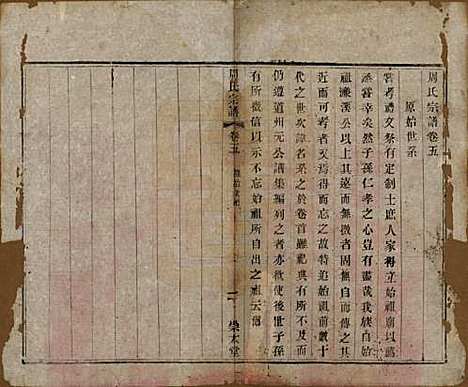 周氏宗譜卷五
原始世系
嘗考禮文祭有定制士庶人家得立始祖廟以將
烝嘗幸矣然子孫仁孝之心豈有盡哉我族自始
祖濂溪公以上其遠而無徵者固無自而傳之其
近而可考者又焉得而忘之故特追始祖前數十
代之世次諱名系之於卷首雖祀典有所不及而
仍遵道州元公譜集編列之者亦欲使後世子孫
有所徵信以示不忘始祖所自出之祖云爾
周氏宗譜
卷五
原始世系
一
榮木堂